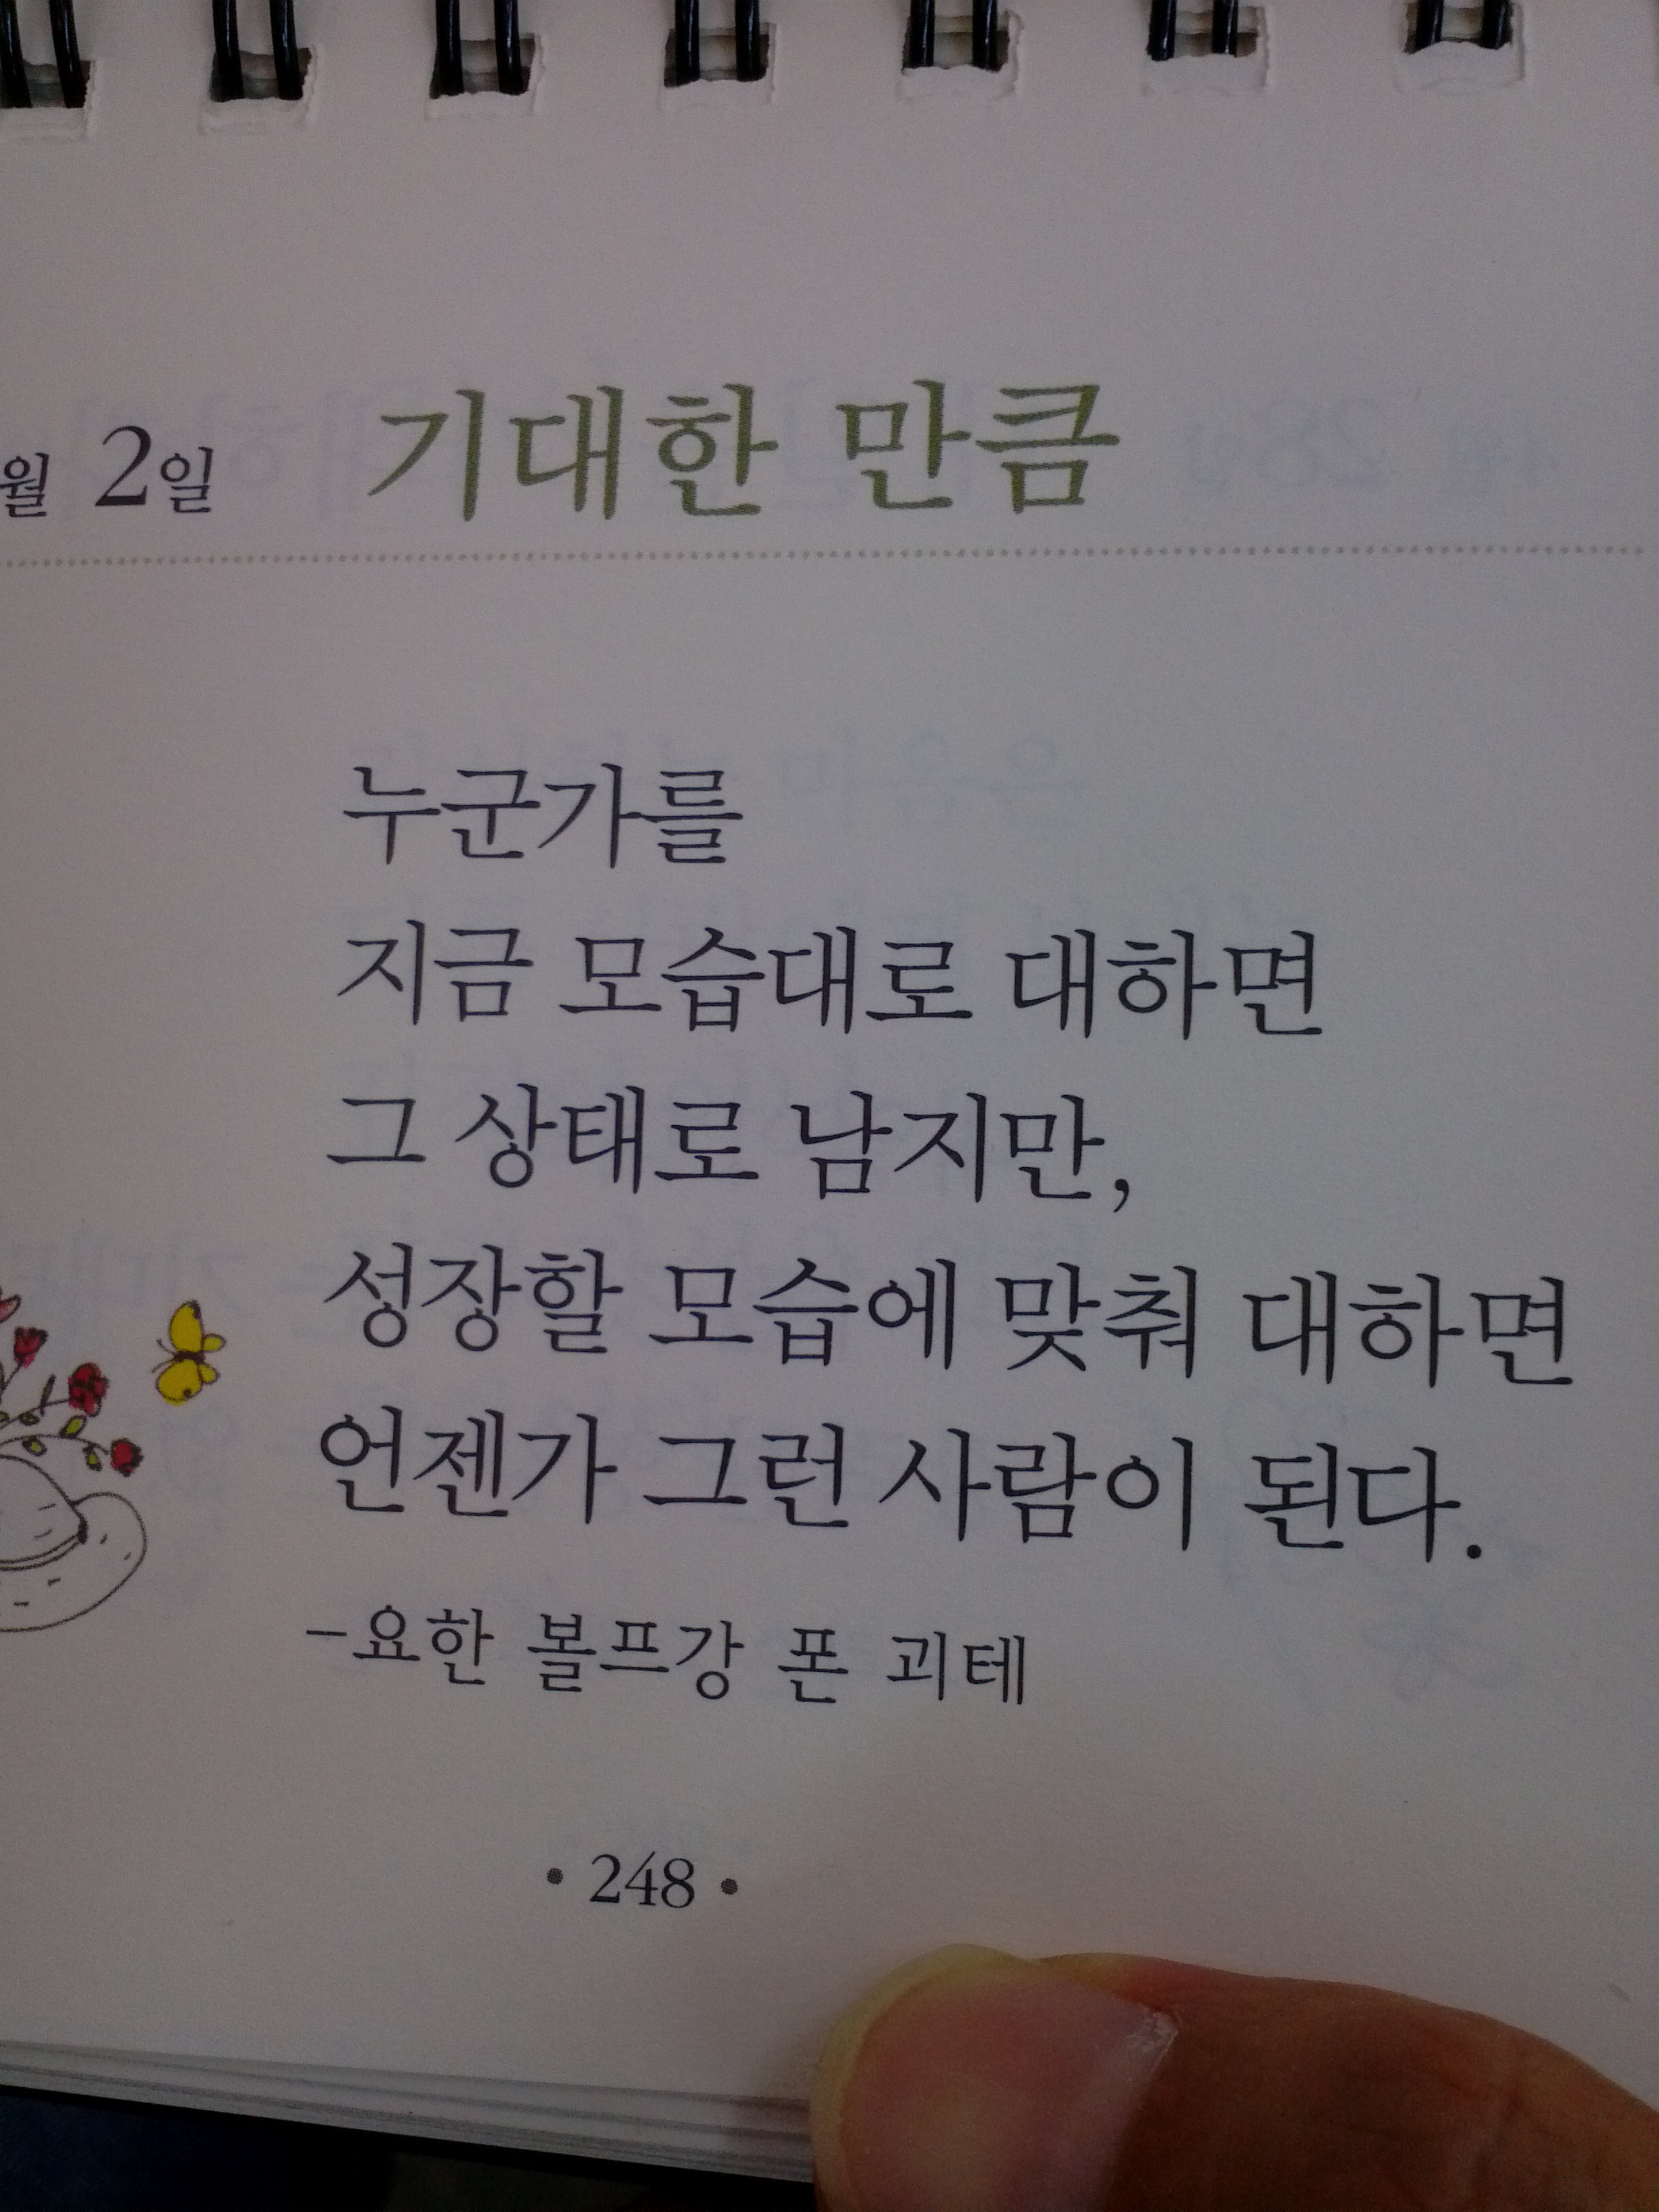 월 2일 기대한 만큼
누군가를
지금 모습대로 대하면
그 상태로 남지만,
성장할 모습에 맞춰 대하면
언젠가 그런 사람이 된다.
-요한 볼프강 폰 괴테
• 248 •